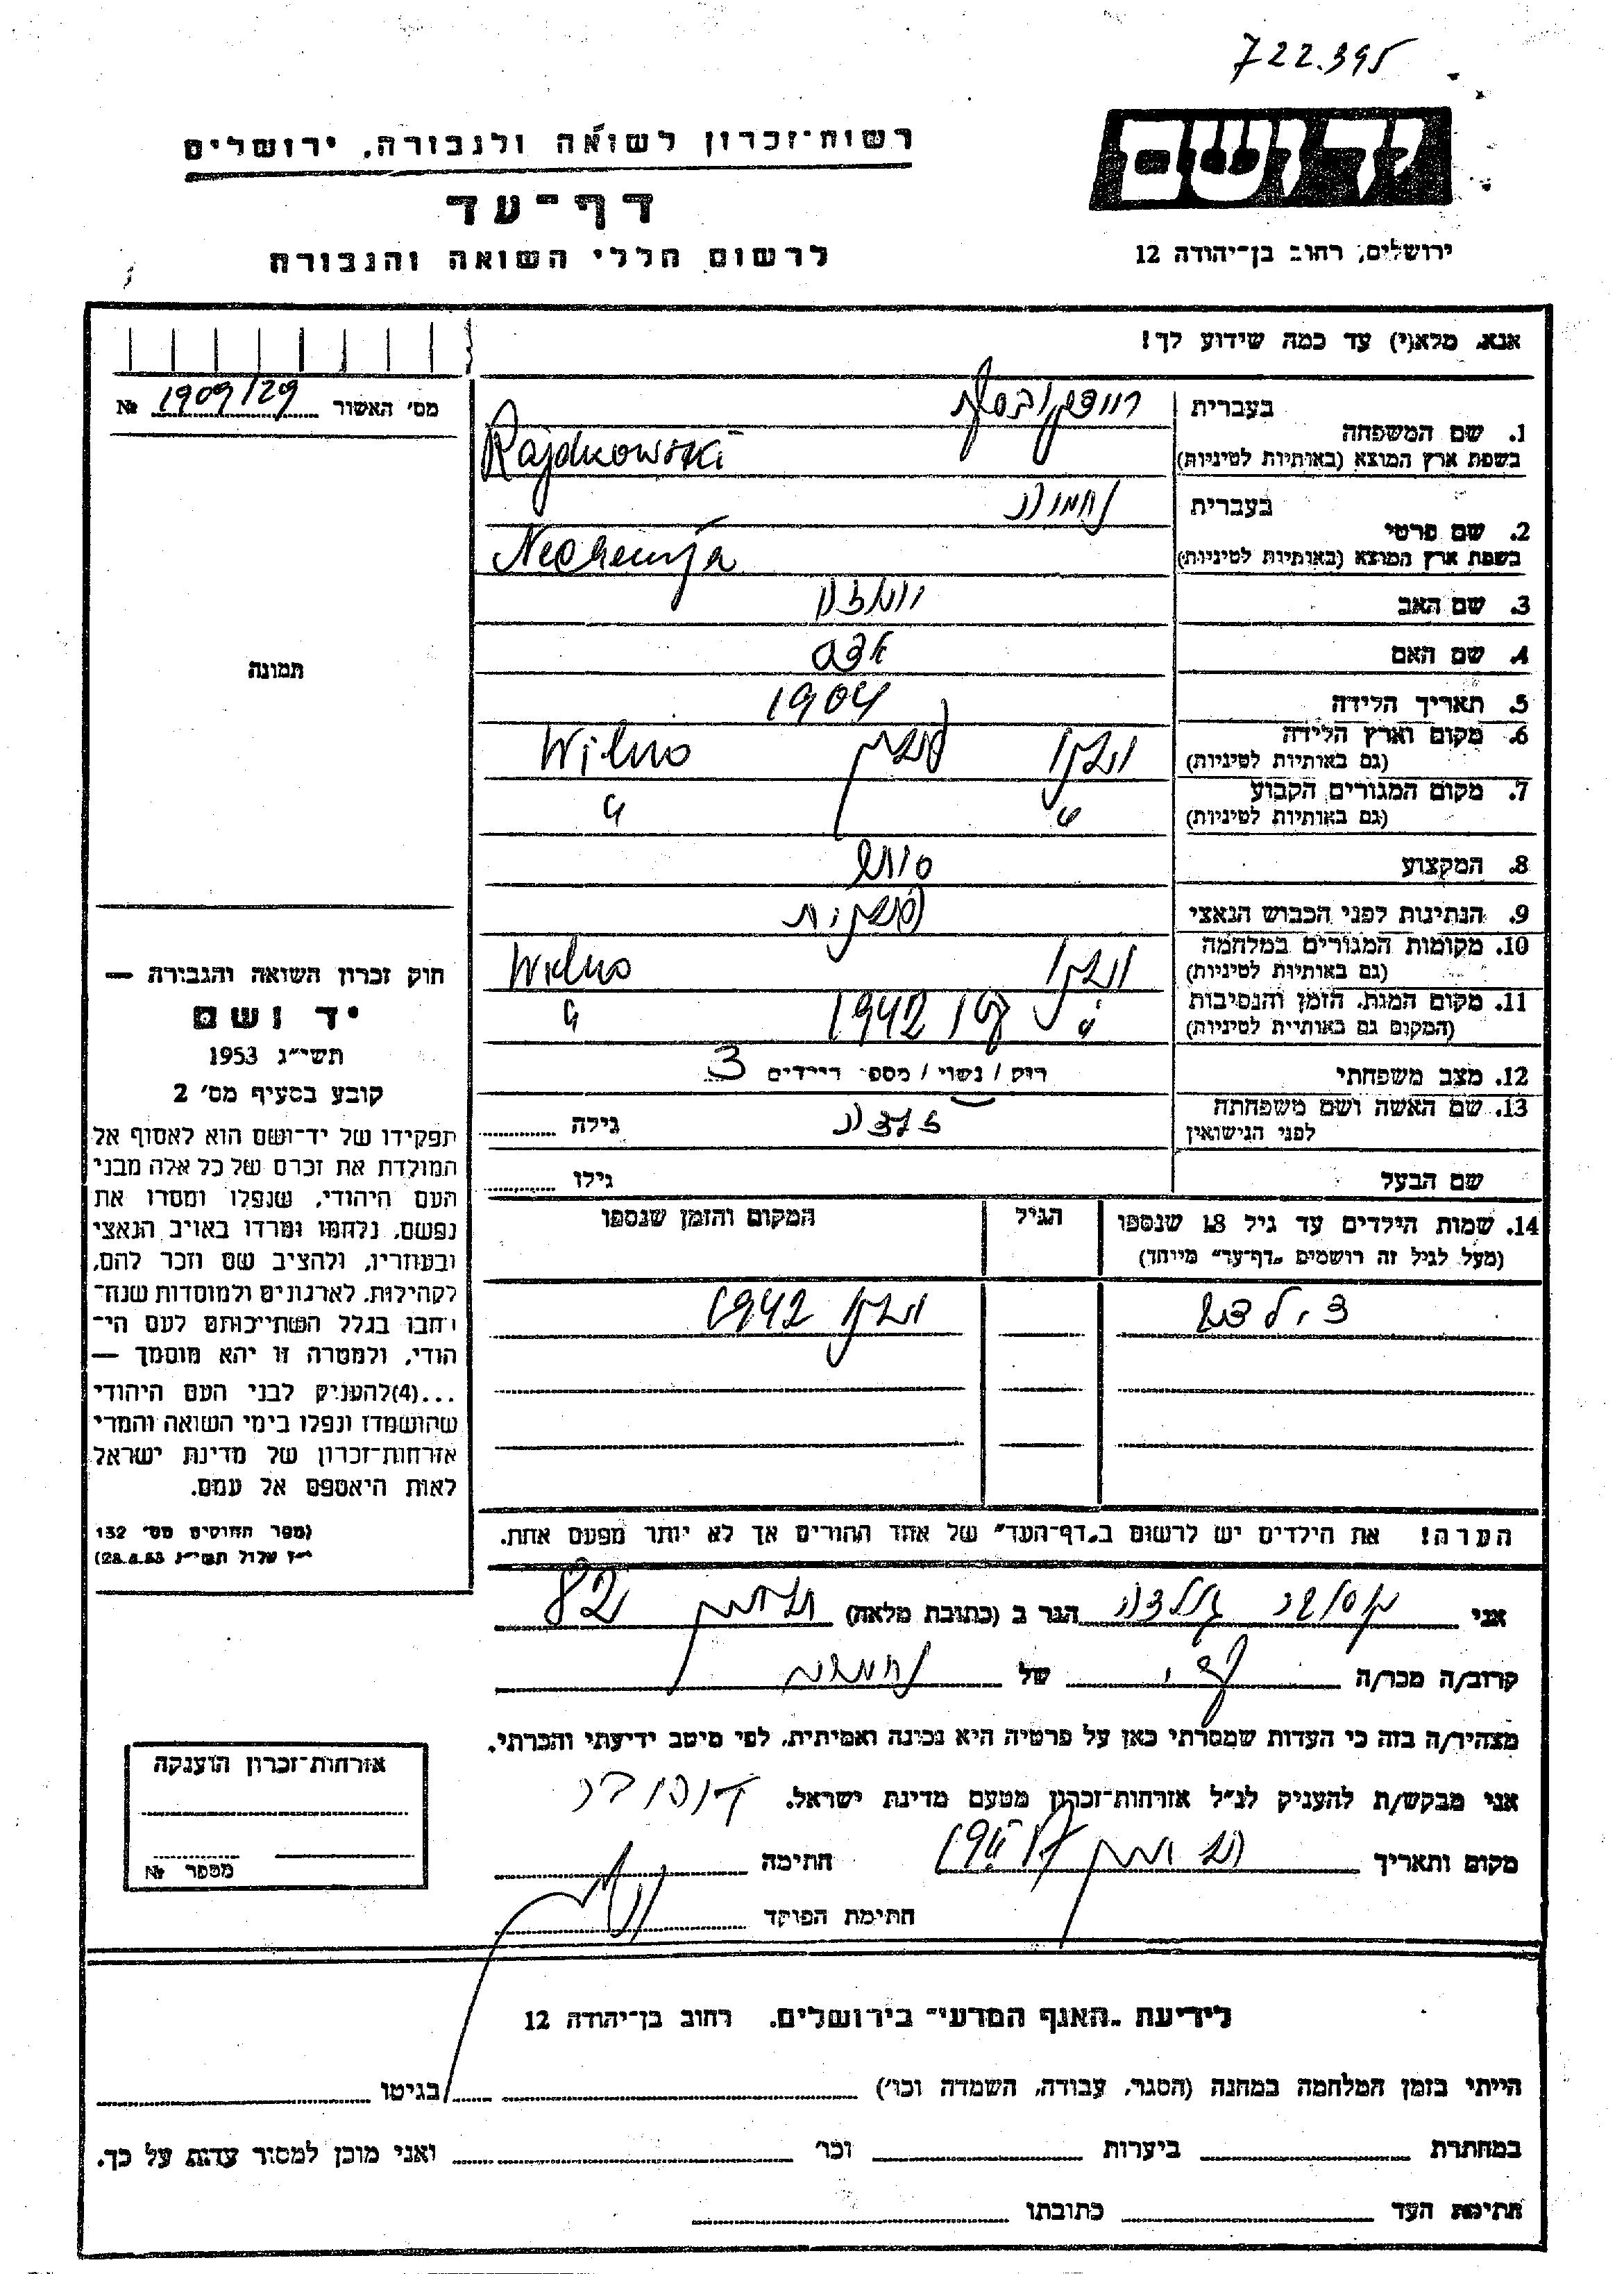 722.395
רשות־זכרון לשואה ולגבורה, ירושלים
ידושם
דף־עד
לרשום חללי השואה והגבורה
ירושלים, רחוב בן־יהודה 12
אנא, מלא(י) עד כמה שידוע לך!
מס׳ האשור 1909/29 №
1. שם המשפחה
בעברית
בשפת ארץ המוצא (באותיות לטיניות) Rajdkowski
2. שם פרטי
בעברית
בשפת ארץ המוצא (באותיות לטיניות) Nechemja
3. שם האב
4. שם האם
תמונה
5. תאריך הלידה 1904
6. מקום וארץ הלידה
(גם באותיות לטיניות) Wilno
7. מקום המגורים הקבוע
(גם באותיות לטיניות) "
8. המקצוע סוחר
9. הנתינות לפני הכבוש הנאצי
10. מקומות המגורים במלחמה
(גם באותיות לטיניות) Wilno
11. מקום המות, הזמן והנסיבות
(המקום גם באותיות לטיניות) 1942 "
12. מצב משפחתי רווק / נשוי / מספר הילדים 3
13. שם האשה ושם משפחתה
לפני הנישואין
גילה
שם הבעל גילו
14. שמות הילדים עד גיל 18 שנספו הגיל המקום והזמן שנספו
(מעל לגיל זה רושמים „דף־עד״ מיוחד)
3 ילדים וילנה 1942
הערה! את הילדים יש לרשום ב„דף־העד״ של אחד ההורים אך לא יותר מפעם אחת.
חוק זכרון השואה והגבורה —
יד ושם
תשי״ג 1953
קובע בסעיף מס׳ 2
תפקידו של יד־ושם הוא לאסוף אל
המולדת את זכרם של כל אלה מבני
העם היהודי, שנפלו ומסרו את
נפשם, נלחמו ומרדו באויב הנאצי
ובעוזריו, ולהציב שם וזכר להם,
לקהילות, לארגונים ולמוסדות שנח־
רבו בגלל השתייכותם לעם הי־
הודי, ולמטרה זו יהא מוסמך —
...(4)להעניק לבני העם היהודי
שהושמדו ונפלו בימי השואה והמרי
אזרחות־זכרון של מדינת ישראל
לאות היאספם אל עמם.
(ספר החוקים מס׳ 132
י״ז אלול תשי״ג 28.8.53)
אני הגר ב (כתובת מלאה) 82
קרוב/ה מכר/ה של
מצהיר/ה בזה כי העדות שמסרתי כאן על פרטיה היא נכונה ואמיתית, לפי מיטב ידיעתי והכרתי.
אני מבקש/ת להעניק לנ״ל אזרחות־זכרון מטעם מדינת ישראל.
מקום ותאריך חתימה
חתימת הפוקד
אזרחות־זכרון הוענקה
מספר №
לידיעת „האגף המדעי״ בירושלים, רחוב בן־יהודה 12
הייתי בזמן המלחמה במחנה (הסגר, עבודה, השמדה וכו׳) בגיטו
במחתרת ביערות וכו׳ ואני מוכן למסור עדות על כך.
חתימת העד כתובתו